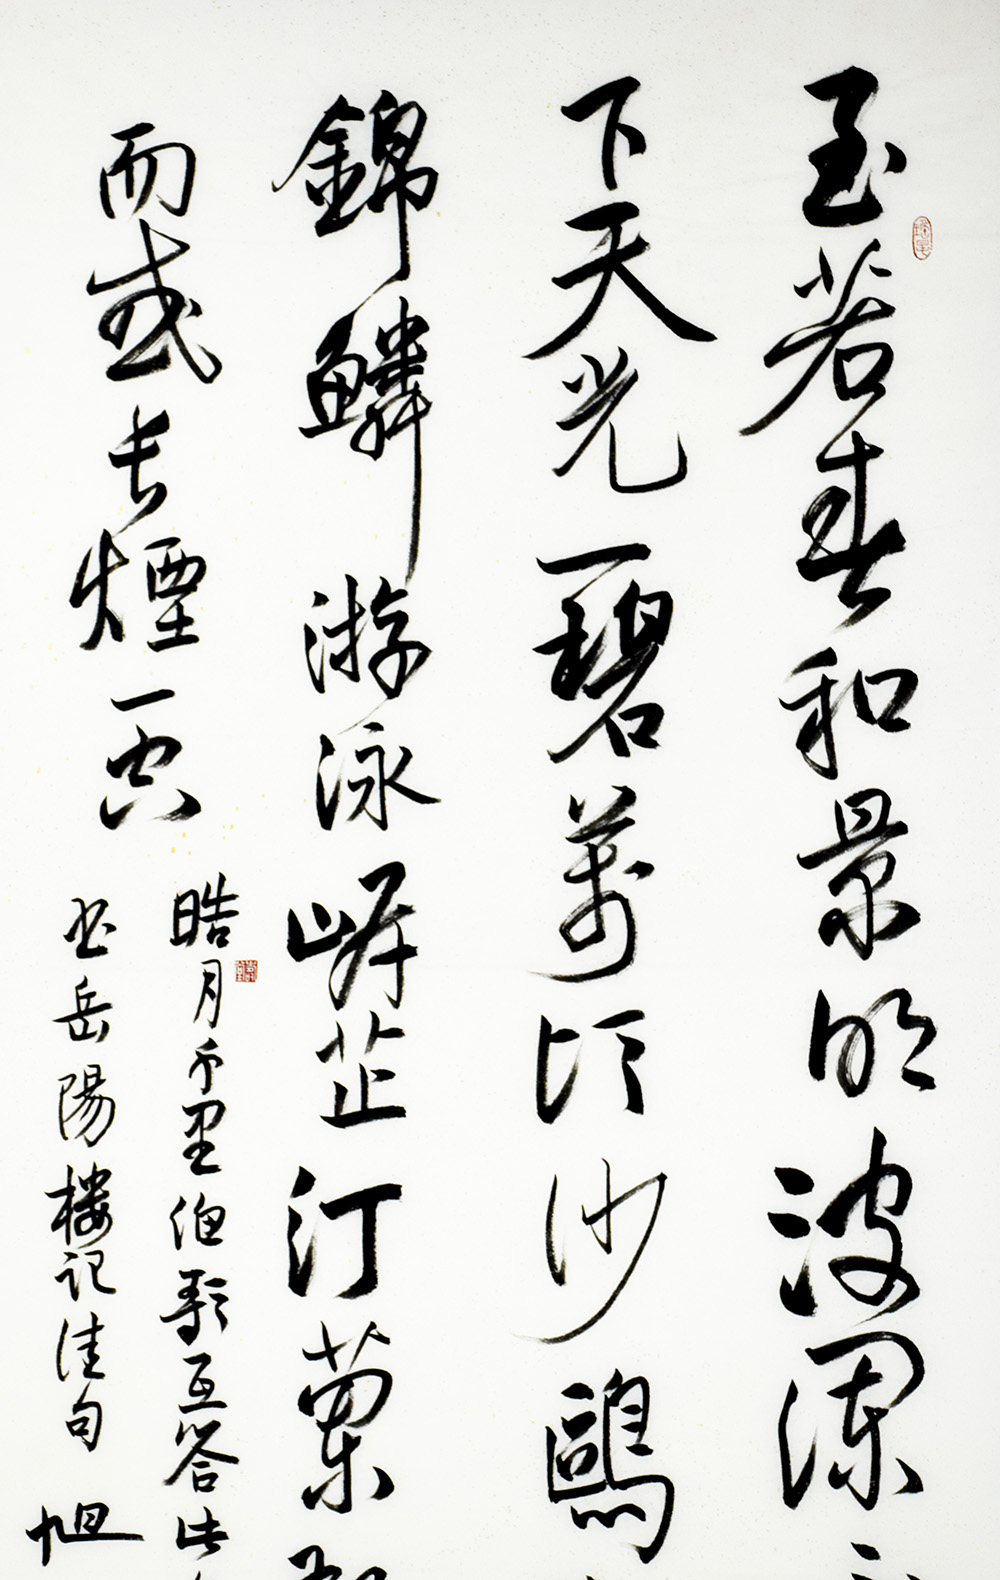 至若春和景明波瀾
下天光一碧萬頃沙鷗
錦鱗游泳岸芷汀蘭
而或長煙一空
皓月千里漁歌互答此
書岳陽樓記佳句 旭